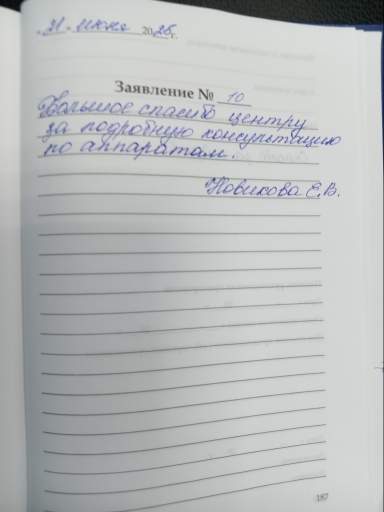 «21» июня 2025г.
Заявление № 10
Большое спасибо центру
за подробную консультацию
по аппаратам.
Новикова Е.В.
187